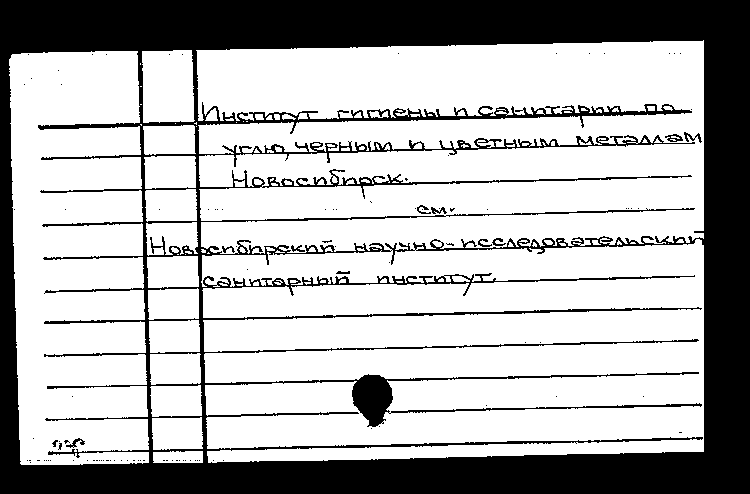 Институт гигиены и санитарии по
углю, черным и цветным металлам
Новосибирск.
см.
Новосибирский научно-исследовательский
санитарный институт.